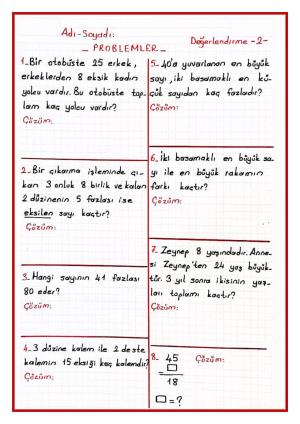 Adı-Soyadı:
Değerlendirme -2-
_ PROBLEMLER _
1_Bir otobüste 25 erkek,
erkeklerden 8 eksik kadın
yolcu vardır. Bu otobüste top-
lam kaç yolcu vardır?
Çözüm:
2_Bir çıkarma işleminde çı-
kan 3 onluk 8 birlik ve kalan
2 düzinenin 5 fazlası ise
eksilen sayı kaçtır?
Çözüm:
3_Hangi sayının 41 fazlası
80 eder?
Çözüm:
4_3 düzine kalem ile 2 deste
kalemin 15 eksiği kaç kalemdir?
Çözüm:
5_40'a yuvarlanan en büyük
sayı, iki basamaklı en kü-
çük sayıdan kaç fazladır?
Çözüm:
6_İki basamaklı en büyük sa-
yı ile en büyük rakamın
farkı kaçtır?
Çözüm:
7. Zeynep 8 yaşındadır. Anne-
si Zeynep'ten 24 yaş büyük-
tür. 3 yıl sonra ikisinin yaş-
ları toplamı kaçtır?
Çözüm:
8_ 45 Çözüm:
18
=?